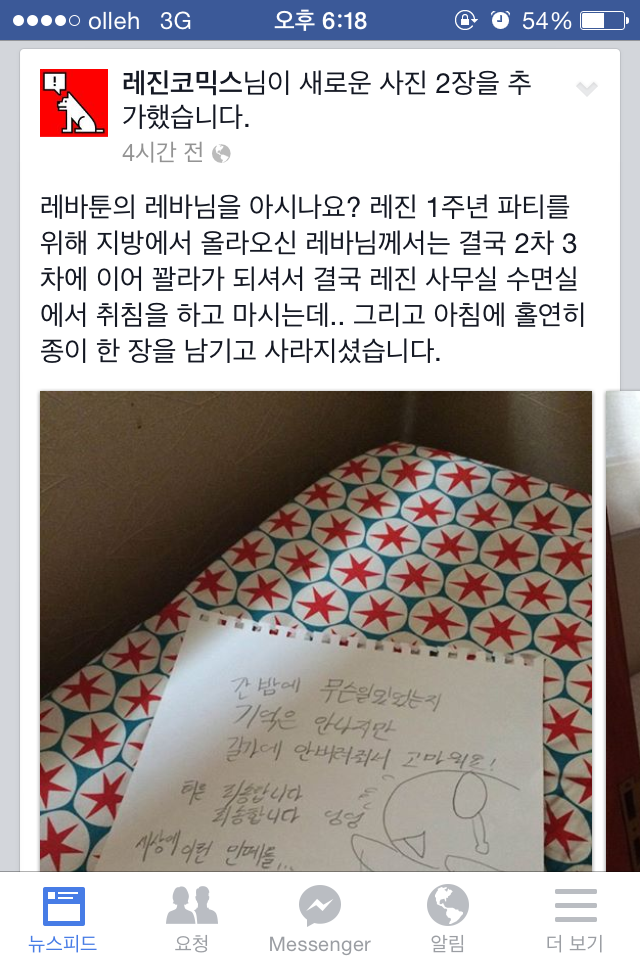 olleh 3G 오후 6:18 54%
레진코믹스님이 새로운 사진 2장을 추
가했습니다.
4시간 전
레바툰의 레바님을 아시나요? 레진 1주년 파티를
위해 지방에서 올라오신 레바님께서는 결국 2차 3
차에 이어 꽐라가 되셔서 결국 레진 사무실 수면실
에서 취침을 하고 마시는데.. 그리고 아침에 홀연히
종이 한 장을 남기고 사라지셨습니다.
간밤에 무슨일이 있었는지
기억은 안나지만
길가에 안버려줘서 고마워요!
죄송합니다
죄송합니다 엉엉
세상에 이런 민폐를...
뉴스피드 요청 Messenger 알림 더 보기